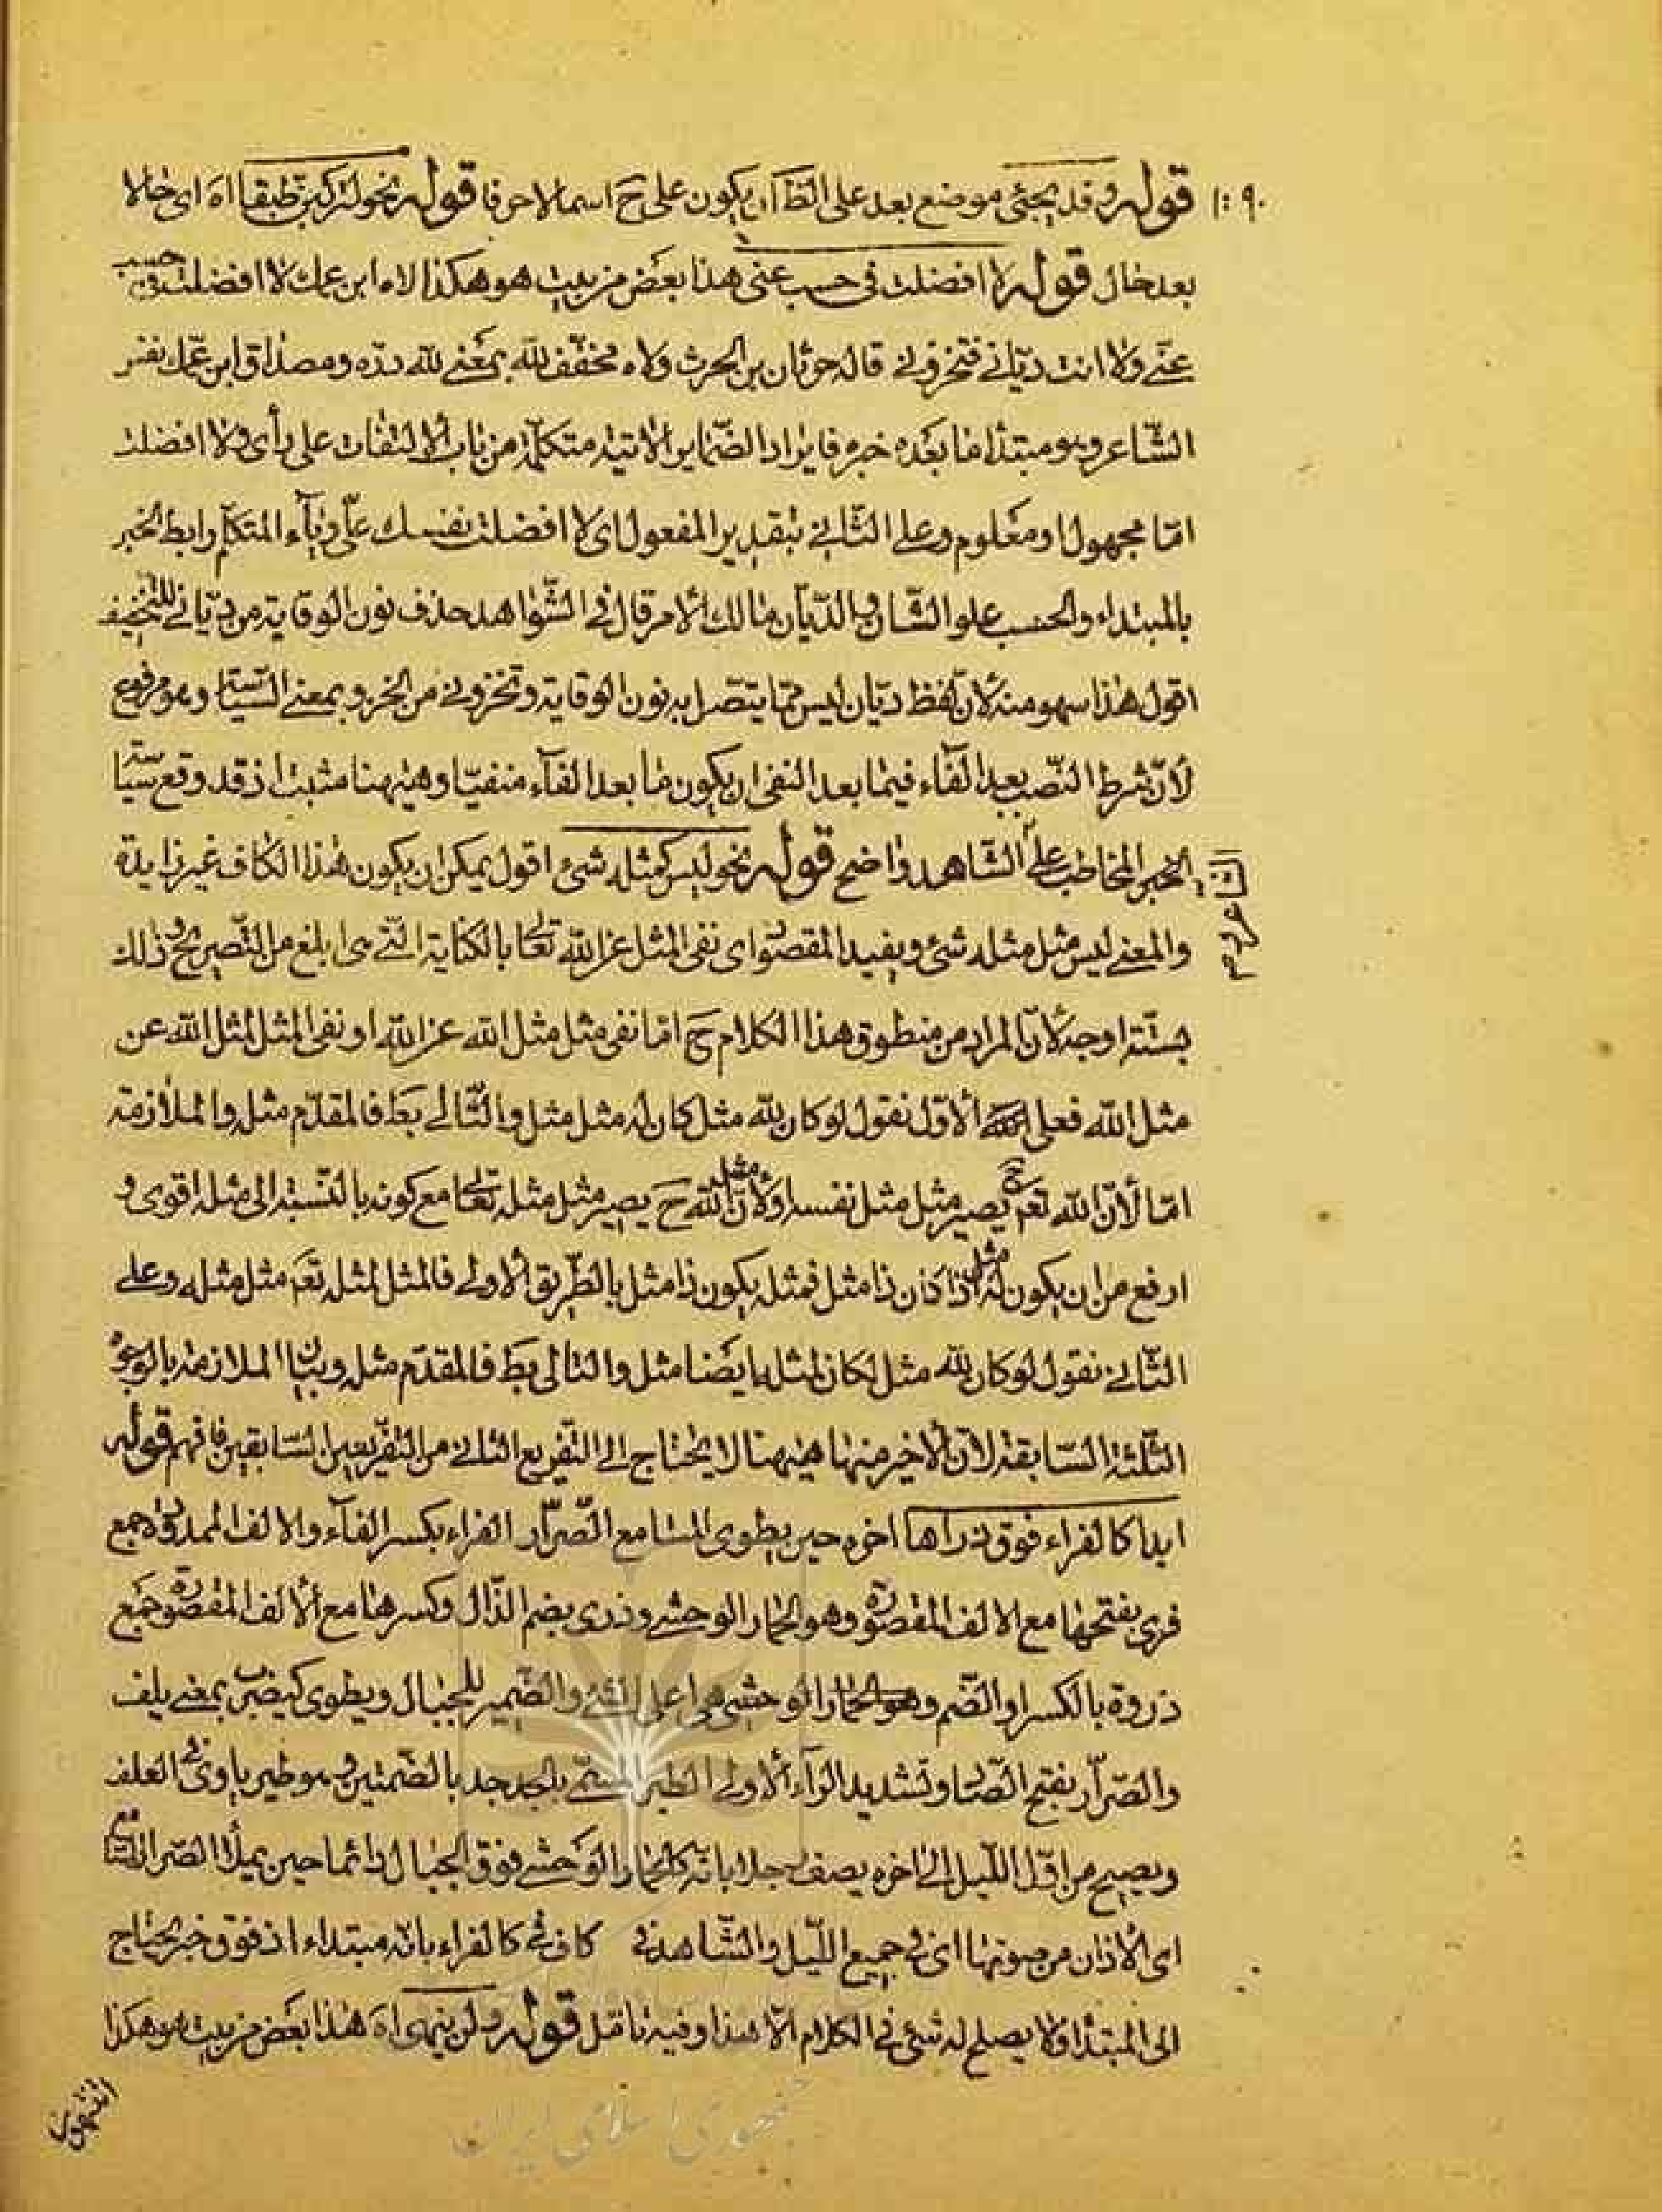 قوله وقد يجئ موضع بعد على الظ ان يكون على ح اسما لا حرفا قوله نحو لتركبن طبقا اه اى حالا
بعد حال قوله لا افضلت فى حسب عنى هذا بعض من بيت هو هكذا لاه ابن عمك لا افضلت فى حسب
عنّى ولا انت ديّانى فتخزونى قاله حرثان بن الحرث ولاه مخفّف لله بمعنى لله درّه ومصداق ابن عمّك نفس
الشّاعر وهو مبتدا ما بعده خبره فايراد الضّماير الاتية متكلّمة من باب الالتفات على رأى ولا افضلت
امّا مجهول او معلوم وعلى الثّانى بتقدير المفعول اى لا افضلت نفسك علىّ وياء المتكلّم رابط الخبر
بالمبتداء والحسب علو الشّان والدّيان مالك الامر قال فى الشّواهد حذف نون الوقاية من ديّانى للتخفيف
اقول هذا سهو منه لانّ لفظ ديّان ليس ممّا يتّصل به نون الوقاية وتخزونى من الخزو بمعنى السّياسة وهو مرفوع
لانّ شرط النّصب بعد الفاء فيما بعد النفى ان يكون ما بعد الفاء منفيّا وهيهنا مثبت اذ قد وقع سياسة
المخاطب على الشّاهد واضح قوله نحو ليس كمثله شئ اقول يمكن ان يكون هذا الكاف غير زايدة
والمعنى ليس مثل مثله شئ ويفيد المقصود اى نفى المثل عن الله تعالى بالكناية الّتى هى ابلغ من التّصريح وذلك
بستّة اوجه لانّ المراد من منطوق هذا الكلام ح امّا نفى مثل مثل الله عن الله او نفى المثل لمثل الله عن
مثل الله فعلى الاوّل نقول لو كان لله مثل كان له مثل مثل والتّالى بط فالمقدّم مثله والملازمة
امّا لانّ الله تعم ح يصير مثل مثل نفسه او لانّ مثل الله ح يصير مثل مثله تعالى مع كونه بالنّسبة الى مثله اقوى و
ارفع من ان يكون له مثل اذا كان ذا مثل فمثله يكون ذا مثل بالطّريق الاولى فالمثل لمثله تعم مثل مثله وعلى
الثّانى نقول لو كان لله مثل لكان لمثله ايضا مثل والتالى بط فالمقدّم مثله وبيان الملازمة بالوجوه
الثّلثة السّابقة لانّ الاخير منها هيهنا لا يحتاج الى التّفريع الثانى من التفريعين السّابقين فافهم قوله
ابدا كالفراء فوق ذراها اخره حين يطوى المسامع الصّرار الفراء بكسر الفاء والالف الممدودة جمع
فرى بفتحها مع الالف المقصورة وهو الحمار الوحشى وذرى بضم الذّال وكسرها مع الالف المقصورة جمع
ذروة بالكسر او الضّم وهو الحمار الوحشى هى اعلى الشئ والضّمير للجبال ويطوى كيضرب بمعنى يلف
والصّرار بفتح الصّاد وتشديد الرّاء الاولى الطير المسمّى بالجدجد بالضّمتين وهو طير ياوى فى العلف
ويصيح من اوّل اللّيل الى اخره يصف رجلا بانّه كالحمار الوحشى فوق الجبال دائما حين يملأ الصّرار
اى الاذان من صوتها اى فى جميع اللّيل والشّاهد فى كاف فى كالفراء بانّه مبتداء اذ فوق خبر يحتاج
الى المبتدا ولا يصلح له شئ فى الكلام الّا هذا وفيه تامّل قوله ولن ينهى اه هذا بعض من بيت هو هكذا